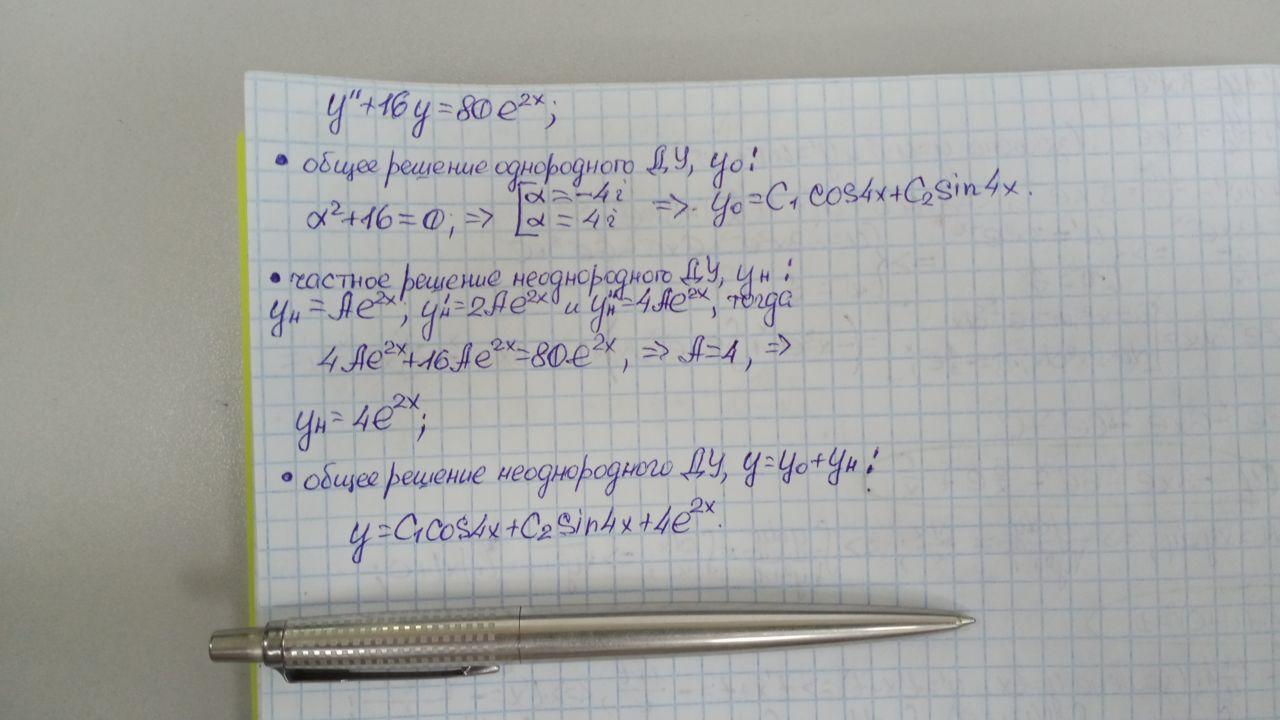 y''+16y=80e^{2x};
• общее решение однородного ДУ, y₀:
α²+16=0, => [α=-4i => y₀=C₁cos4x+C₂sin4x.
α=4i
• частное решение неоднородного ДУ, yн:
yн=Ae^{2x}, yн'=2Ae^{2x} и yн''=4Ae^{2x}, тогда
4Ae^{2x}+16Ae^{2x}=80e^{2x}, => A=4, =>
yн=4e^{2x};
• общее решение неоднородного ДУ, y=y₀+yн:
y=C₁cos4x+C₂sin4x+4e^{2x}.